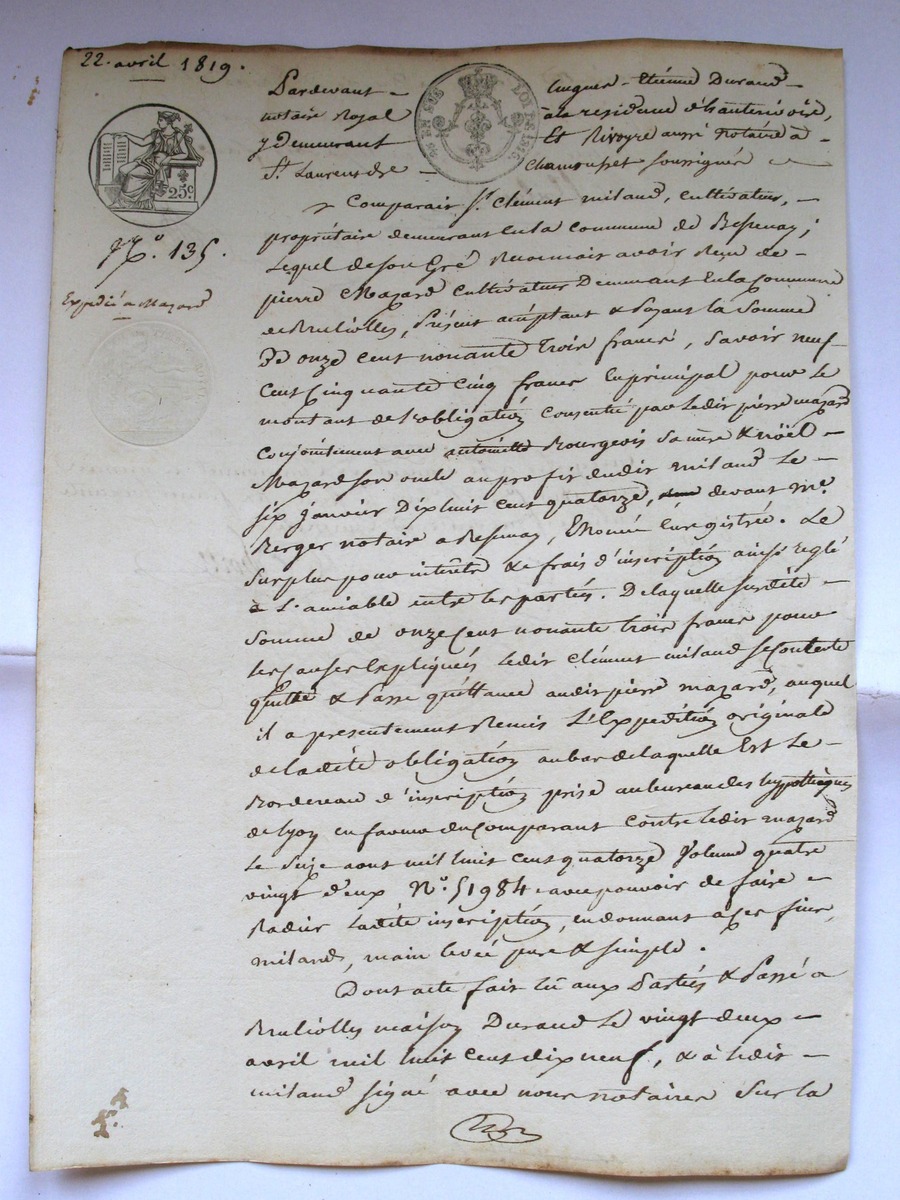 22. avril 1819.
Pardevant - hugues - Etienne Durand
notaire Royal à la residence d'hauterivoire,
y Demeurant Et Rivoyre aussi notaire a
St. Laurent de - Chamousset soussignés
LOUIS
25c
Comparait Sr. Clément miland, cultivateur, -
No. 135.
propriétaire demeurant en la commune de Bessenay;
Lequel de son Gré Reconnait avoir Reçu de -
Expédié a Mazard
pierre Mazard cultivateur Demeurant En la Commune
de Brullioles, Présent acceptant & payant la Somme
De onze cent nonante trois francs, savoir neuf
Cent Cinquante Cinq francs En principal pour le
montant de l'obligation consentie par ledit pierre mazard
conjointement avec antoinette Bourgeois sa mère & noël -
Mazard son oncle au profit dudit miland Le -
six janvier Dix huit cent quatorze, devant me.
Berger notaire a Bessenay, Enregistrée. Le
Surplus pour intérêts & frais d'inscription ainsi reglé
à L'amiable entre les parties. De laquelle susdite -
Somme de onze Cent nonante trois francs pour
les causes Expliquées ledit Clément miland se Contente
quitte & Passe quittance audit pierre mazard, auquel
il a presentement Remis L'Expedition originale
de ladite obligation au bas de laquelle Est Le -
Bordereau d'inscription prise au bureau des hypotheques
de Lyon en faveur du Comparant contre ledit mazard
Le Seize aout mil huit cent quatorze Volume quatre
vingt deux No. 51984. avec pouvoir de faire -
Radier Ladite inscription, en donnant a ces fins,
miland, main levée pure & simple.
Dont acte fait lû aux Parties & Passé a
Brullioles maison Durand le vingt deux -
avril mil huit cent dix neuf, & a ledit -
miland signé avec nous notaires Sur la